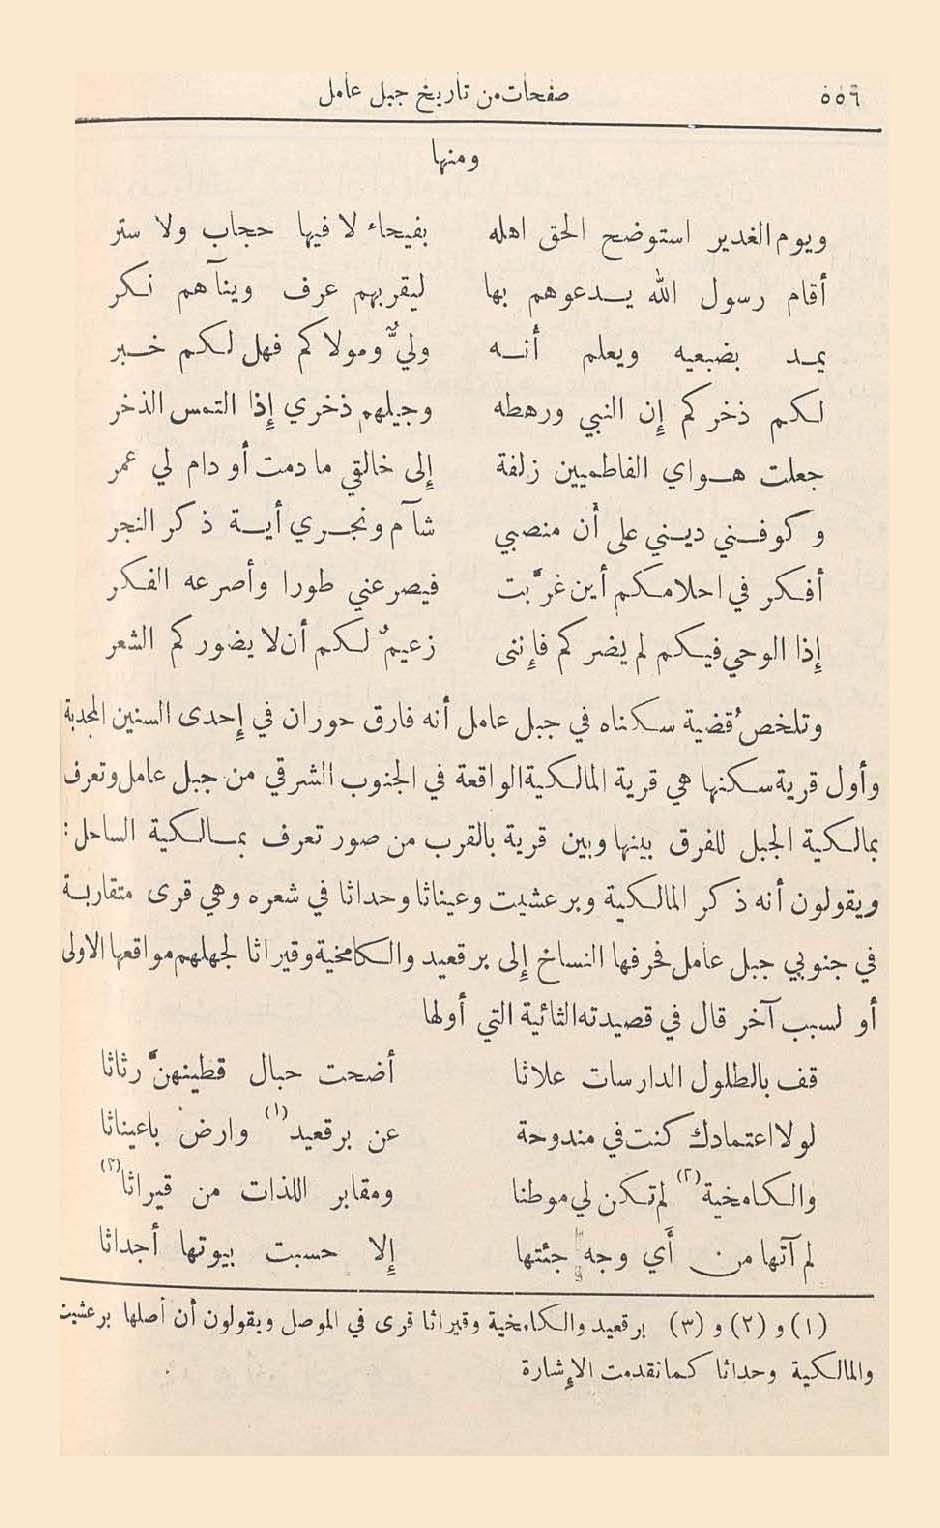 ٥٥٦ صفحات من تاريخ جبل عامل
ومنها
ويوم الغدير استوضح الحق اهله بفيحاء لا فيها حجاب ولا ستر
أقام رسول الله يدعوهم بها ليقربهم عرف وينآهم نكر
يمد بضبعيه ويعلم أنه وليٌّ ومولاكم فهل لكم خبر
لكم ذخركم إن النبي ورهطه وجيلهم ذخري إذا التمس الذخر
جعلت هواي الفاطميين زلفة إلى خالقي ما دمت أو دام لي عمر
وكوفني ديني على أن منصبي شآم ونجري أية ذكر النجر
أفكر في احلامكم أين غرّبت فيصرعني طورا وأصرعه الفكر
إذا الوحي فيكم لم يضركم فإننى زعيمٌ لكم أن لا يضوركم الشعر
وتلخص قضية سكناه في جبل عامل أنه فارق حوران في إحدى السنين المجدبة
وأول قرية سكنها هي قرية المالكية الواقعة في الجنوب الشرقي من جبل عامل وتعرف
بمالكية الجبل للفرق بينها وبين قرية بالقرب من صور تعرف بمالكية الساحل :
ويقولون أنه ذكر المالكية وبرعشيت وعيناثا وحداثا في شعره وهي قرى متقاربة
في جنوبي جبل عامل فحرفها النساخ إلى برقعيد والكامخية وقيراثا لجهلهم مواقعها الاولى
أو لسبب آخر قال في قصيدته الثائية التي أولها
قف بالطلول الدارسات علاثا أضحت حبال قطينهنّ رثاثا
لولا اعتمادك كنت في مندوحة عن برقعيد (١) وارض باعيناثا
والكامخية (٢) لم تكن لي موطنا ومقابر اللذات من قيراثا (٣)
لم آتها من أي وجه جئتها إلا حسبت بيوتها أجداثا
(١) و (٢) و (٣) برقعيد والكامخية وقيراثا قرى في الموصل ويقولون أن أصلها برعشيت
والمالكية وحداثا كما تقدمت الإشارة